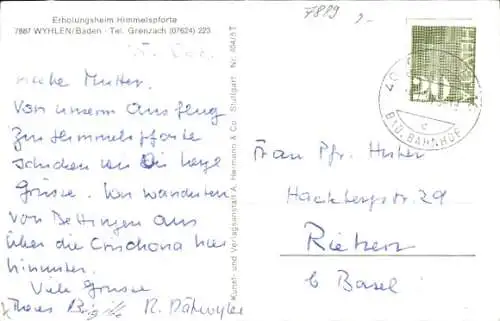 Erholungsheim Himmelspforte
7887 WYHLEN/Baden · Tel. Grenzach (07624) 223
Liebe Mutter.
Von unserem Ausflug
zur Himmelspforte
schicken wir Dir
Grüsse. Wir wanderten
von Bettingen aus
über die Crischona hier
hinunter.
Viele Grüsse
R. Dätwyler
Kunst- und Verlagsanstalt A. Hermann & Co Stuttgart Nr. 404/5 T
7889
HELVETIA
20
BAD. BAHNHOF
c
Frau Pfr. Huter
Hackbergstr. 29
Riehen
b Basel